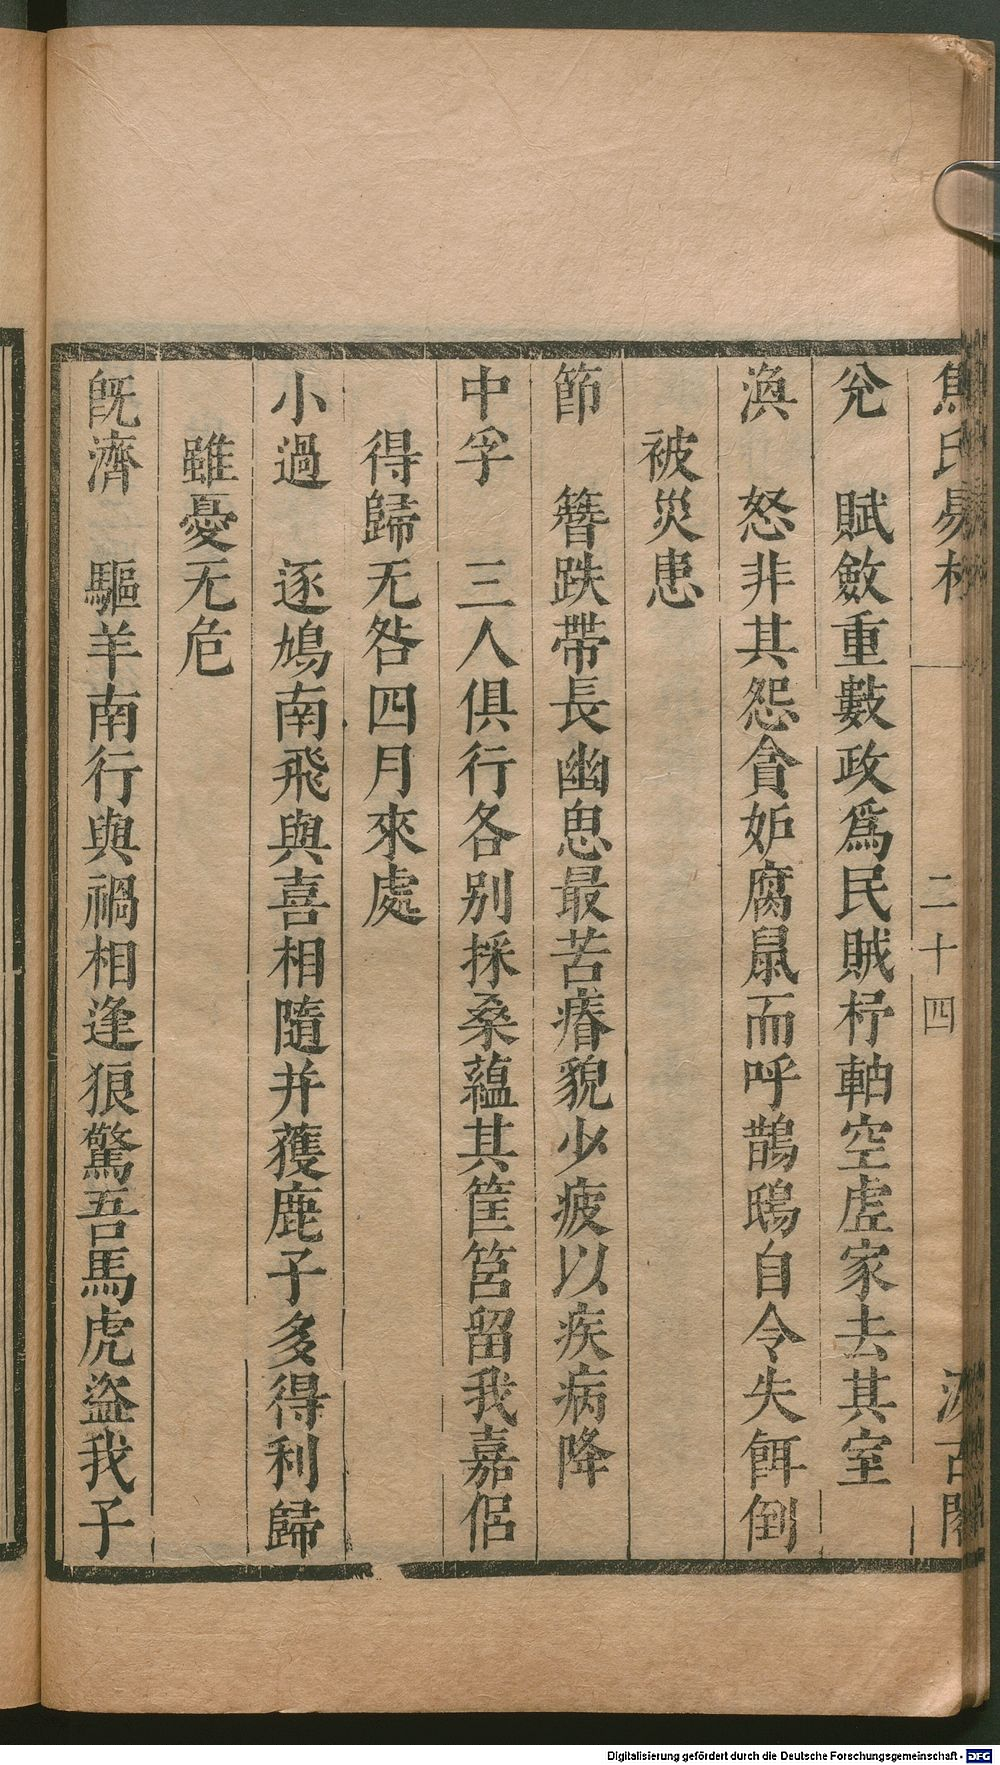 焦氏易林 二十四 汲古閣
兊 賦斂重數政爲民賊杼軸空虗家去其室
渙 怒非其怨貪妒腐鼠而呼鵲鴟自令失餌倒
被災患
節 簪跌帶長幽思最苦瘠貌少疲以疾病降
中孚 三人俱行各别採桑蘊其筐筥留我嘉侣
得歸无咎四月來處
小過 逐鳩南飛與喜相隨并獲鹿子多得利歸
雖憂无危
旣濟 驅羊南行與禍相逢狼驚吾馬虎盜我子
Digitalisierung gefördert durch die Deutsche Forschungsgemeinschaft - DFG